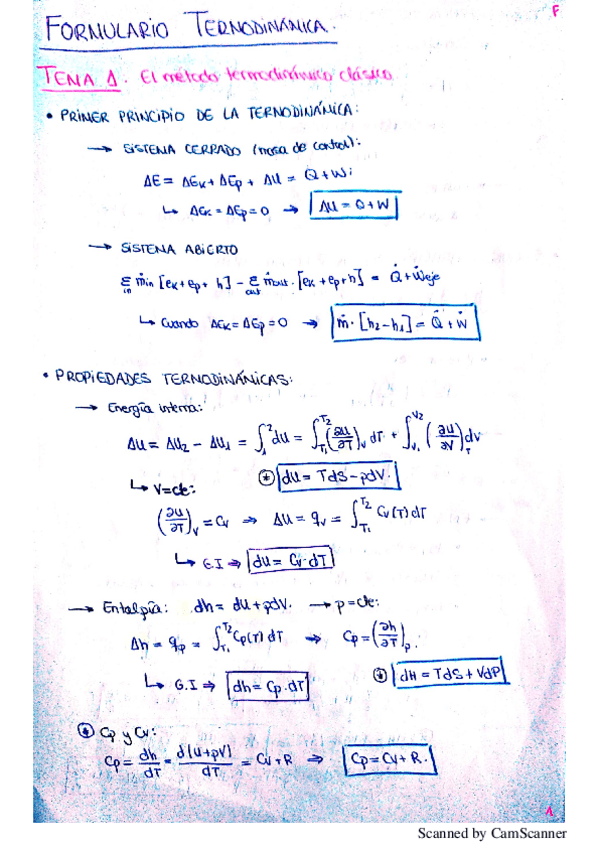 F
FORMULARIO TERMODINÁMICA.
TEMA 1. El método termodinámico clásico
• PRIMER PRINCIPIO DE LA TERMODINÁMICA:
→ SISTEMA CERRADO (masa de control):
ΔE = ΔEk + ΔEp + ΔU = Q + Wi
↳ ΔEk = ΔEp = 0 → ΔU = Q + W
→ SISTEMA ABIERTO
Σin ṁin [ek + ep + h] − Σout ṁout · [ek + ep + h] = Q̇ + Ẇeje
↳ Cuando ΔEk = ΔEp = 0 → ṁ · [h2 − h1] = Q̇ + Ẇ
• PROPIEDADES TERMODINÁMICAS:
→ Energía interna:
ΔU = ΔU2 − ΔU1 = ∫₁² du = ∫T1^T2 (∂U/∂T)v dT + ∫V1^V2 (∂U/∂V)T dv
↳ V = cte: ⊛ du = TdS − pdV.
(∂U/∂T)v = Cv ⇒ ΔU = qv = ∫T1^T2 Cv(T) dT
↳ G.I ⇒ du = Cv·dT
→ Entalpía: dh = du + pdV. → p = cte:
Δh = qp = ∫T1^T2 Cp(T) dT ⇒ Cp = (∂h/∂T)p.
↳ G.I ⇒ dh = Cp·dT ⊛ dH = TdS + VdP
⊛ Cp y Cv:
Cp = dh/dT = d(U+pV)/dT = Cv + R ⇒ Cp = Cv + R.
1
Scanned by CamScanner